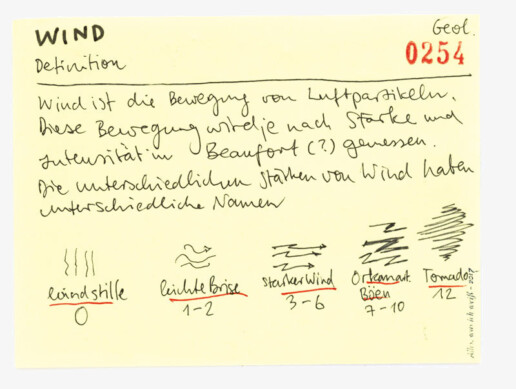 WIND
Geol.
Definition
0254
Wind ist die Bewegung von Luftpartikeln.
Diese Bewegung wird je nach Stärke und
Intensität in Beaufort (?) gemessen.
Die unterschiedlichen Stärken von Wind haben
unterschiedliche Namen
Windstille
0
leichte Brise
1-2
starker Wind
3-6
Orkanart.
Böen
7-10
Tornado
12